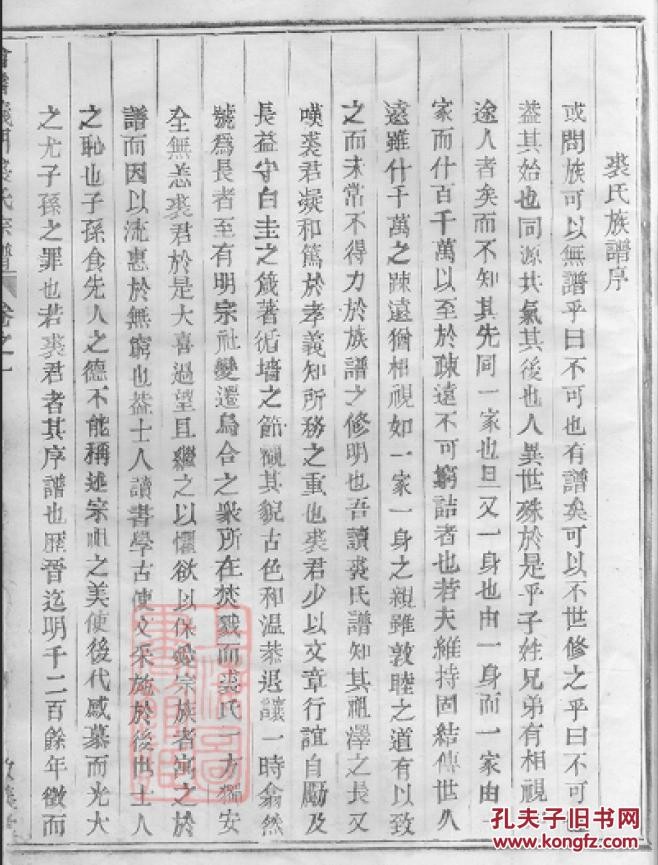 裘氏族譜序
或問族可以無譜乎曰不可也有譜矣可以不世修之乎曰不可
葢其始也同源共氣其後也人異世殊於是乎子姓兄弟有相視
途人者矣而不知其先同一家也且又一身也由一身而一家由一
家而什百千萬以至於疎遠不可窮詰者也若夫維持固結傳世久
遠雖什千萬之踈遠猶相視如一家一身之親雖敦睦之道有以致
之而未常不得力於族譜之修明也吾讀裘氏譜知其祖澤之長又
嘆裘君凝和篤於孝義知所務之重也裘君少以文章行誼自勵及
長益守白圭之箴著循墻之節覩其貌古色和温恭退讓一時翕然
號爲長者至有明宗社變遷烏合之衆所在焚戮而裘氏一方獨安
全無恙裘君於是大喜過望且繼之以懼欲以休 宗族者寓之於
譜而因以流惠於無窮也葢士人讀書學古使文采施於後世士人
之恥也子孫食先人之德不能稱述宗祖之美使後代感慕而光大
之尤子孫之罪也若裘君者其序譜也歷晉迄明千二百餘年徵而
裘氏宗譜 卷之一
孔夫子旧书网
www.kongfz.com